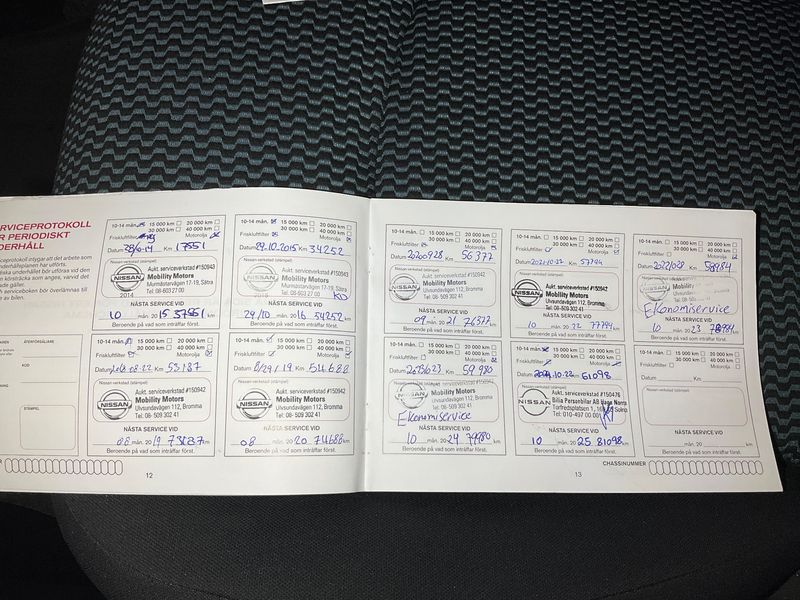 SERVICEPROTOKOLL
PERIODISKT
UNDERHÅLL
10-14 mån. 15 000 km 20 000 km
30 000 km 40 000 km
Friskluftfilter Motorolja
Datum Km 17551
Nissan-verkstad (stämpel)
NISSAN
Aukt. serviceverkstad #150943
Mobility Motors
Murmästarvägen 17-19, Sätra
Tel: 08-603 27 00
2014
NÄSTA SERVICE VID
10 mån. 20 15 km
Beroende på vad som inträffar först.
10-14 mån. 15 000 km 20 000 km
30 000 km 40 000 km
Friskluftfilter Motorolja
Datum 29.10.2015 Km 34252
Nissan-verkstad (stämpel)
NISSAN
Aukt. serviceverkstad #150943
Mobility Motors
Murmästarvägen 17-19, Sätra
Tel: 08-603 27 00
KD
NÄSTA SERVICE VID
29/10 mån. 2016 54252 km
Beroende på vad som inträffar först.
10-14 mån. 15 000 km 20 000 km
30 000 km 40 000 km
Friskluftfilter Motorolja
Datum 08-22 Km 53187
Nissan-verkstad (stämpel)
NISSAN
Aukt. serviceverkstad #150942
Mobility Motors
Ulvsundavägen 112, Bromma
Tel: 08-509 302 41
NÄSTA SERVICE VID
08 mån. 2019 km
Beroende på vad som inträffar först.
10-14 mån. 15 000 km 20 000 km
30 000 km 40 000 km
Friskluftfilter Motorolja
Datum 8/29/19 Km 54688
Nissan-verkstad (stämpel)
NISSAN
Aukt. serviceverkstad #150942
Mobility Motors
Ulvsundavägen 112, Bromma
Tel: 08-509 302 41
NÄSTA SERVICE VID
08 mån. 2020 74688 km
Beroende på vad som inträffar först.
12
10-14 mån. 15 000 km 20 000 km
30 000 km 40 000 km
Friskluftfilter Motorolja
Datum 20200928 Km 56377
Nissan-verkstad (stämpel)
NISSAN
Aukt. serviceverkstad #150942
Mobility Motors
Ulvsundavägen 112, Bromma
Tel: 08-509 302 41
NÄSTA SERVICE VID
09 mån. 2021 76377 km
Beroende på vad som inträffar först.
10-14 mån. 15 000 km 20 000 km
30 000 km 40 000 km
Friskluftfilter Motorolja
Datum 2021-10-22 Km 57744
Nissan-verkstad (stämpel)
NISSAN
Aukt. serviceverkstad #150942
Mobility Motors
Ulvsundavägen 112, Bromma
Tel: 08-509 302 41
NÄSTA SERVICE VID
10 mån. 2022 77744 km
Beroende på vad som inträffar först.
10-14 mån. 15 000 km 20 000 km
30 000 km 40 000 km
Friskluftfilter Motorolja
Datum 20221028 Km 58984
Nissan-verkstad (stämpel)
Ekonomiservice
NÄSTA SERVICE VID
10 mån. 2023 78984 km
Beroende på vad som inträffar först.
10-14 mån. 15 000 km 20 000 km
30 000 km 40 000 km
Friskluftfilter Motorolja
Datum Km 59980
Nissan-verkstad (stämpel)
NISSAN
Aukt. serviceverkstad #150942
Mobility Motors
Ulvsundavägen 112, Bromma
Ekonomiservice
NÄSTA SERVICE VID
10 mån. 2024 79980 km
Beroende på vad som inträffar först.
10-14 mån. 15 000 km 20 000 km
30 000 km 40 000 km
Friskluftfilter Motorolja
Datum 2024.10.22 Km 61098
Nissan-verkstad (stämpel)
NISSAN
Aukt. serviceverkstad #150476
Bilia Personbilar AB Haga Norra
Tel: 010-497 00 00
NÄSTA SERVICE VID
10 mån. 2025 81098 km
Beroende på vad som inträffar först.
10-14 mån. 15 000 km 20 000 km
30 000 km 40 000 km
Friskluftfilter Motorolja
Datum Km
Nissan-verkstad (stämpel)
NÄSTA SERVICE VID
mån. 20 km
Beroende på vad som inträffar först.
CHASSINUMMER
13